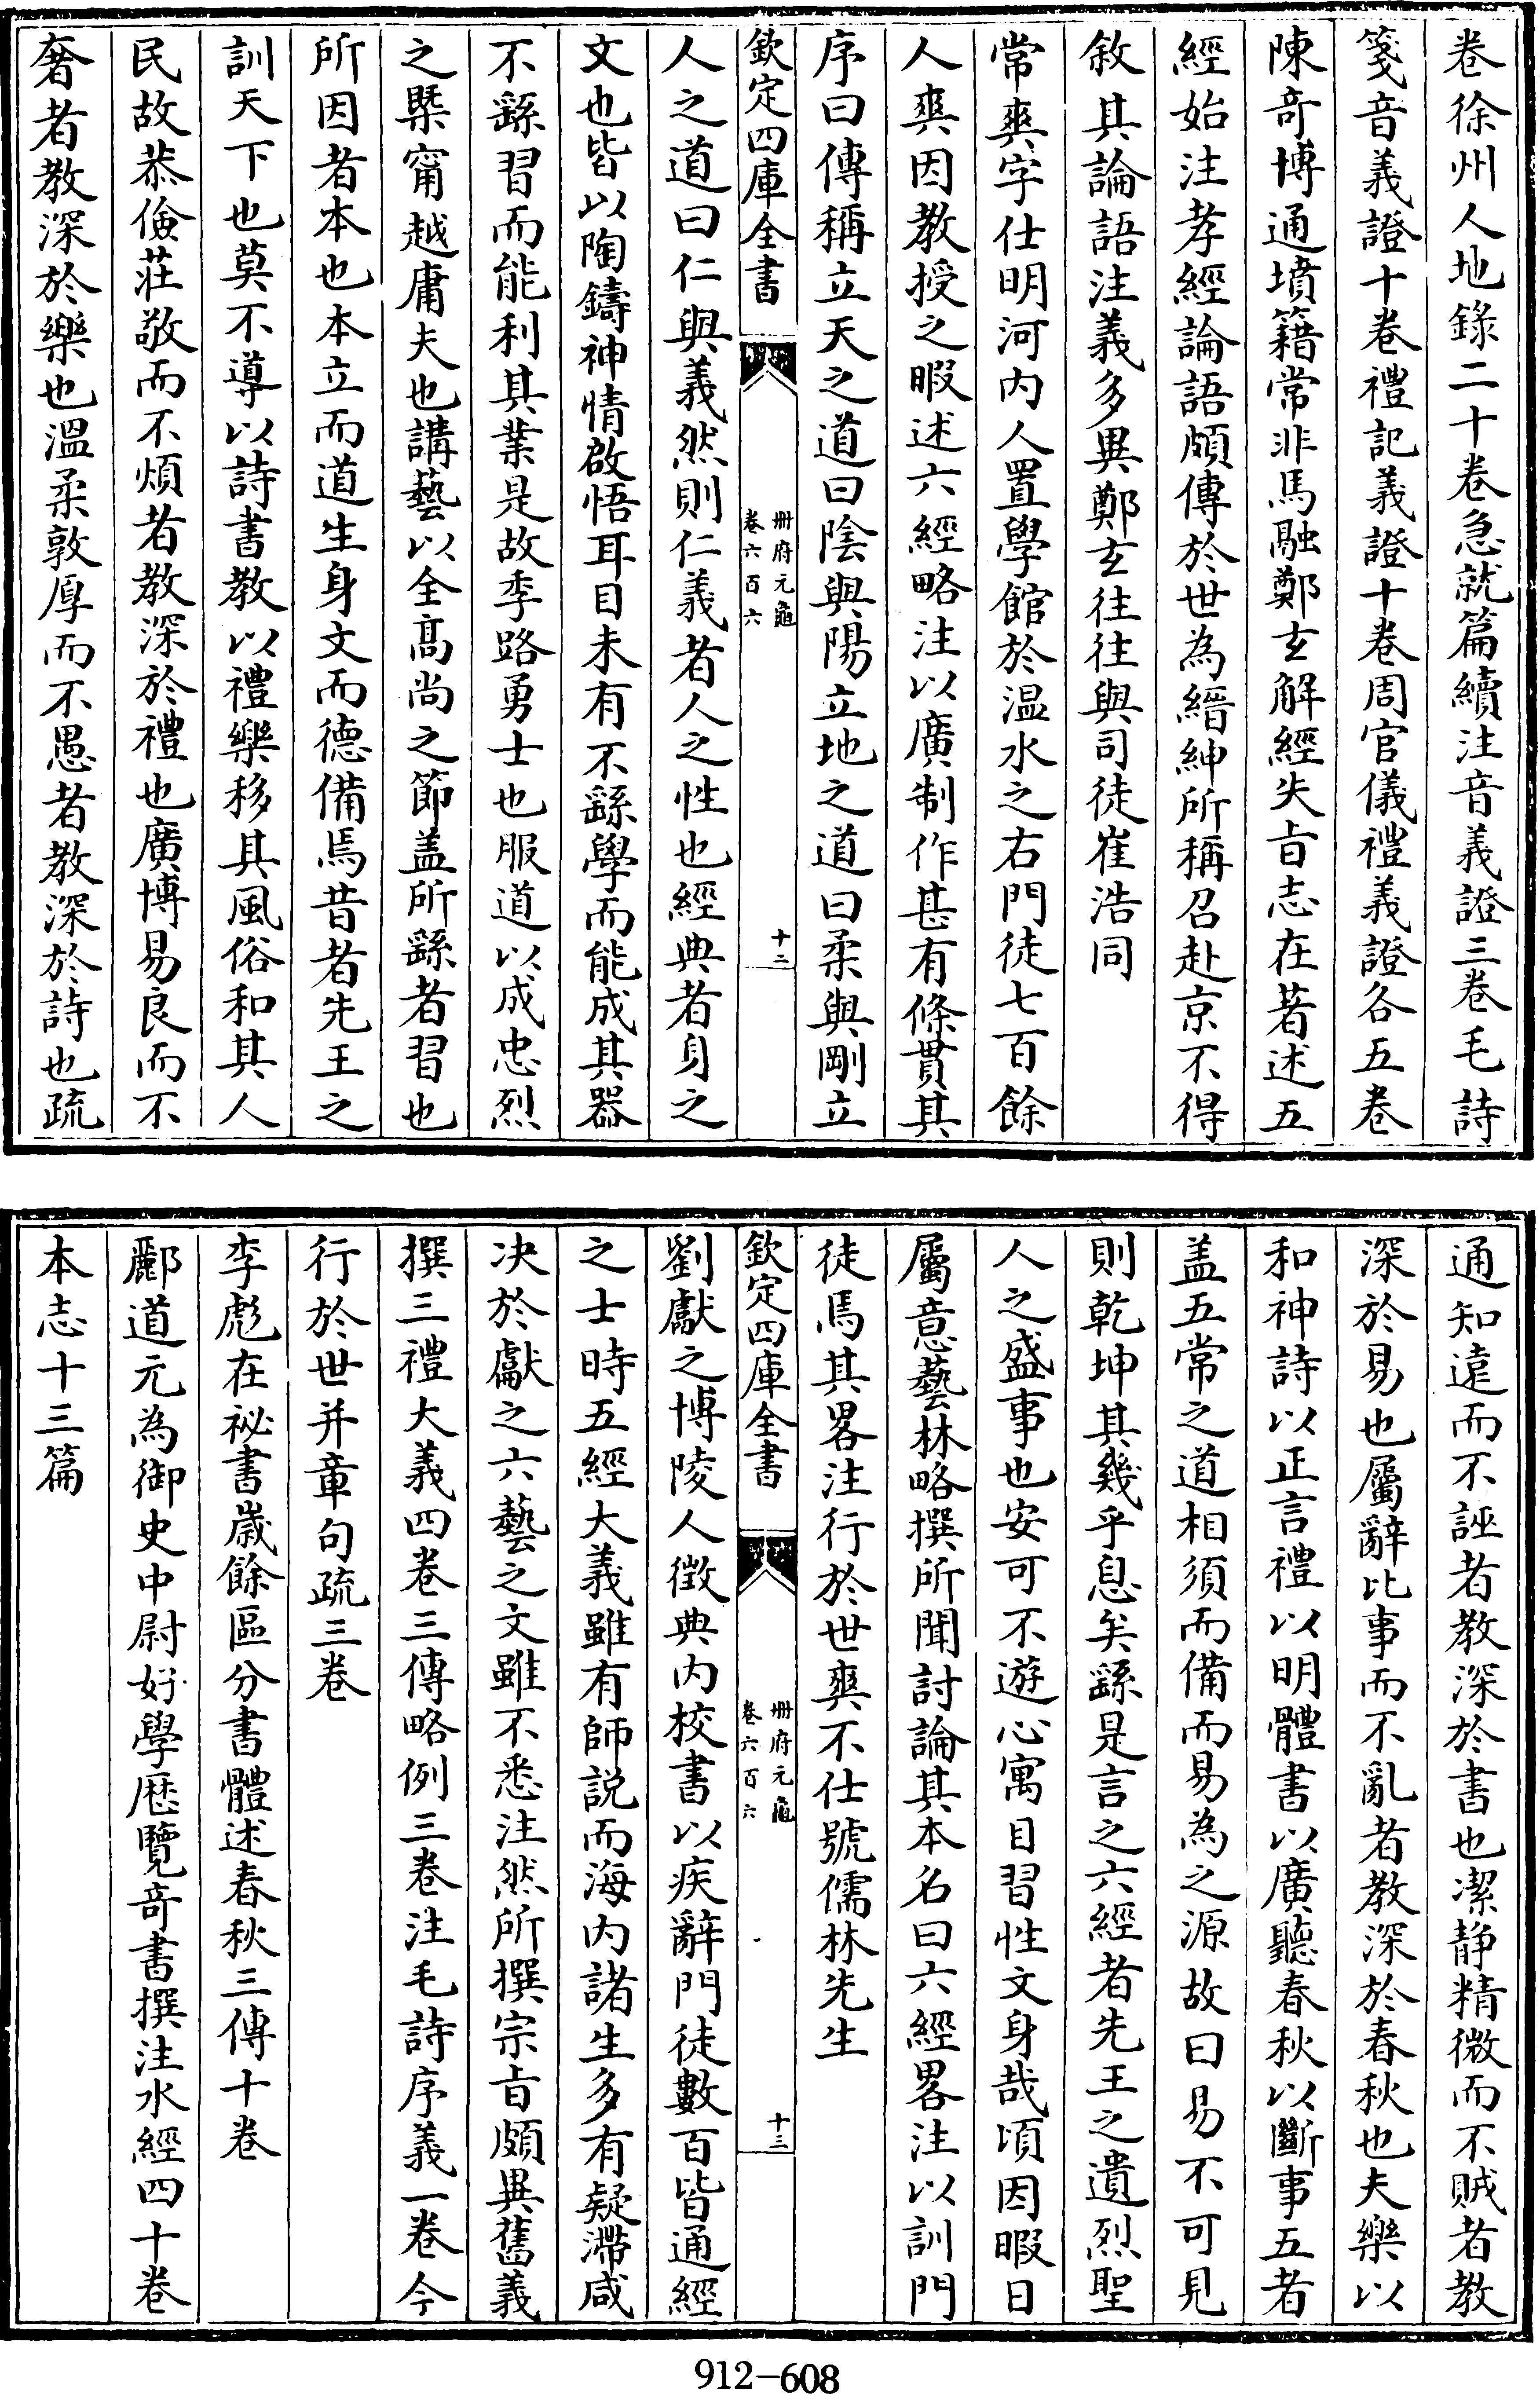 卷徐州人地錄二十卷急就篇續注音義證三卷毛詩
箋音義證十卷禮記義證十卷周官儀禮義證各五卷
陳奇博通墳籍常非馬融鄭玄解經失㫖志在著述五
經始注孝經論語頗傳於世為縉紳所稱召赴京不得
敘其論語注義多異鄭玄往往與司徒崔浩同
常爽字仕明河内人置學館於温水之右門徒七百餘
人爽因教授之暇述六經略注以廣制作甚有條貫其
序曰傳稱立天之道曰陰與陽立地之道曰柔與剛立
欽定四庫全書
冊府元龜
卷六百六
十二
人之道曰仁與義然則仁義者人之性也經典者身之
文也皆以陶鑄神情啟悟耳目未有不繇學而能成其器
不繇習而能利其業是故季路勇士也服道以成忠烈
之槩甯越庸夫也講藝以全髙尚之節盖所繇者習也
所因者本也本立而道生身文而德備焉昔者先王之
訓天下也莫不導以詩書教以禮樂移其風俗和其人
民故恭儉莊敬而不煩者教深於禮也廣博易良而不
奢者教深於樂也溫柔敦厚而不愚者教深於詩也疏
通知遠而不誣者教深於書也潔静精微而不賊者教
深於易也屬辭比事而不亂者教深於春秋也夫樂以
和神詩以正言禮以明體書以廣聽春秋以斷事五者
盖五常之道相須而備而易為之源故曰易不可見
則乾坤其幾乎息矣繇是言之六經者先王之遺烈聖
人之盛事也安可不遊心寓目習性文身哉頃因暇日
屬意藝林略撰所聞討論其本名曰六經畧注以訓門
徒焉其畧注行於世爽不仕號儒林先生
欽定四庫全書
冊府元龜
卷六百六
十三
劉獻之博陵人徵典内校書以疾辭門徒數百皆通經
之士時五經大義雖有師説而海内諸生多有疑滯咸
决於獻之六藝之文雖不悉注然所撰宗㫖頗異舊義
撰三禮大義四卷三傳略例三卷注毛詩序義一卷今
行於世并章句疏三卷
李彪在祕書歲餘區分書體述春秋三傳十卷
酈道元為御史中尉好學歴覽奇書撰注水經四十卷
本志十三篇
912-608